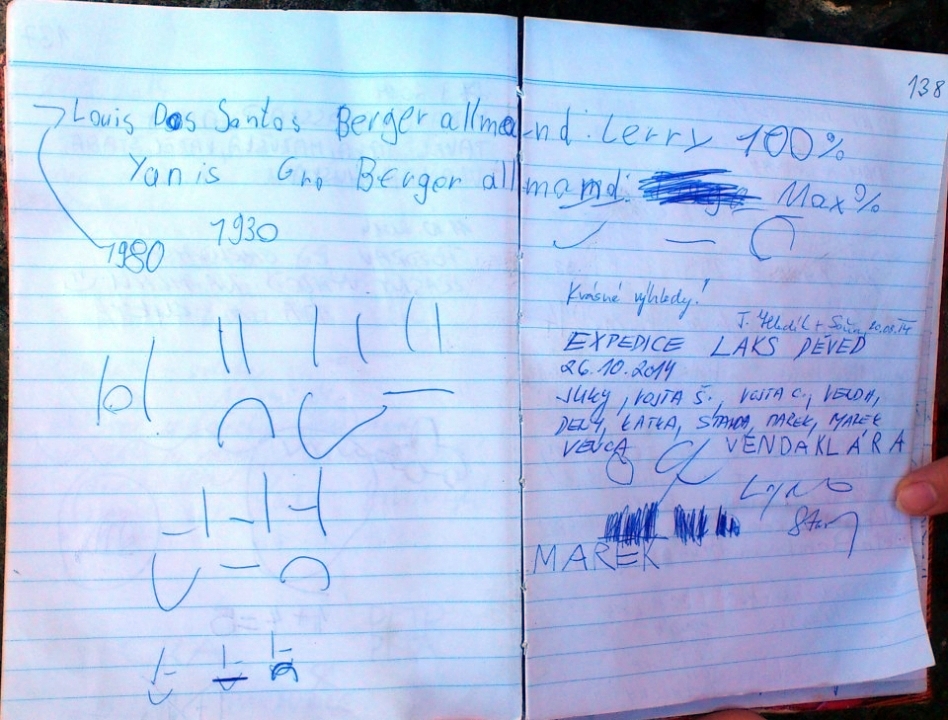 138
Louis Dos Santos Berger allmand. Lerry 100%
Yanis Gr. Berger allmamd. Max%
1930
1980
Krásné výhledy!
EXPEDICE LAKS DĚVED
26.10.2014
VOJTA Š., VOJTA C.,
KATKA, STANDA, MAREK, MAREK
VENCA VENDAKLÁRA
MAREK